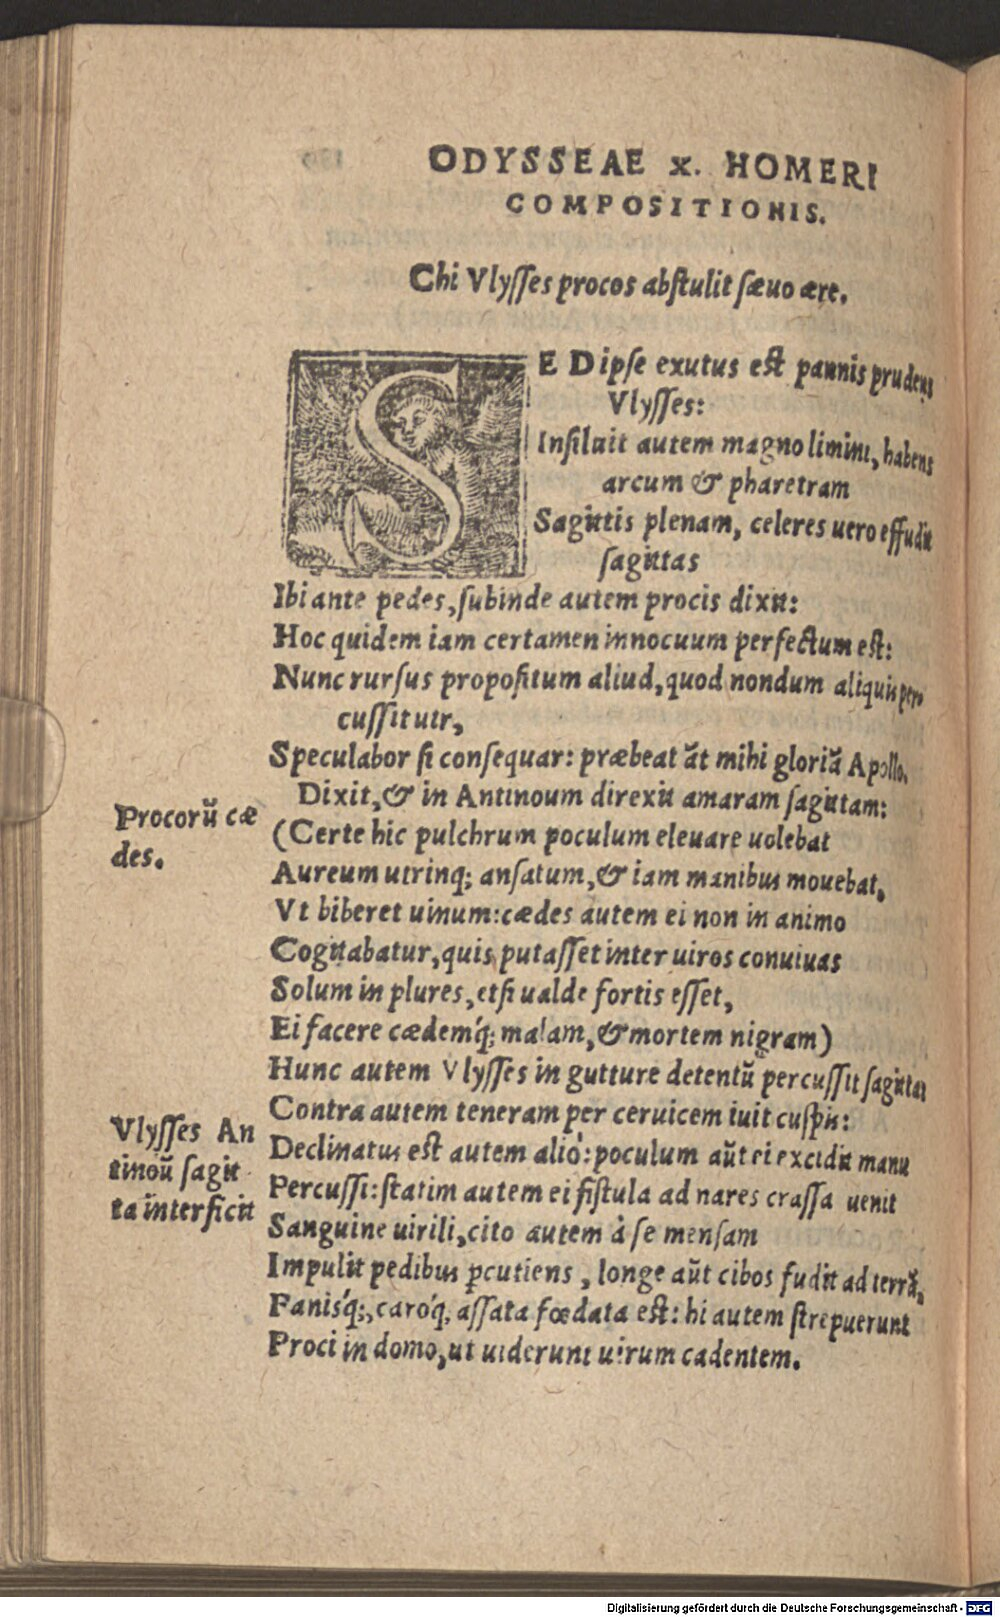 ODYSSEAE x. HOMERI
COMPOSITIONIS.
Chi Vlyſſes procos abſtulit ſæuo ære.
SE D ipſe exutus eſt pannis prudens
Vlyſſes:
Inſiluit autem magno limini, habens
arcum & pharetram
Sagittis plenam, celeres uero effudit
ſagittas
Ibi ante pedes, ſubinde autem procis dixit:
Hoc quidem iam certamen innocuum perfectum eſt:
Nunc rurſus propoſitum aliud, quod nondum aliquis per
cuſſit uir,
Speculabor ſi conſequar: præbeat āt mihi gloriā Apollo.
Dixit, & in Antinoum direxit amaram ſagittam:
Procorū cæ
des.
(Certe hic pulchrum poculum eleuare uolebat
Aureum utrinq; anſatum, & iam manibus mouebat,
Vt biberet uinum: cædes autem ei non in animo
Cogitabatur, quis putaſſet inter uiros conuiuas
Solum in plures, etſi ualde fortis eſſet,
Ei facere cædemq́; malam, & mortem nigram)
Hunc autem Vlyſſes in gutture detentū percuſſit ſagitta:
Contra autem teneram per ceruicem iuit cuſpis:
Vlyſſes An
tinoū ſagit
ta interficit
Declinatus eſt autem aliò: poculum aūt ei excidit manu
Percuſſi: ſtatim autem ei fiſtula ad nares craſſa uenit
Sanguine uirili, cito autem à ſe menſam
Impulit pedibus ꝑcutiens, longe aūt cibos fudit ad terrā,
Panisq́;, caroq́; aſſata fœdata eſt: hi autem ſtrepuerunt
Proci in domo, ut uiderunt uirum cadentem.
Digitalisierung gefördert durch die Deutsche Forschungsgemeinschaft - DFG